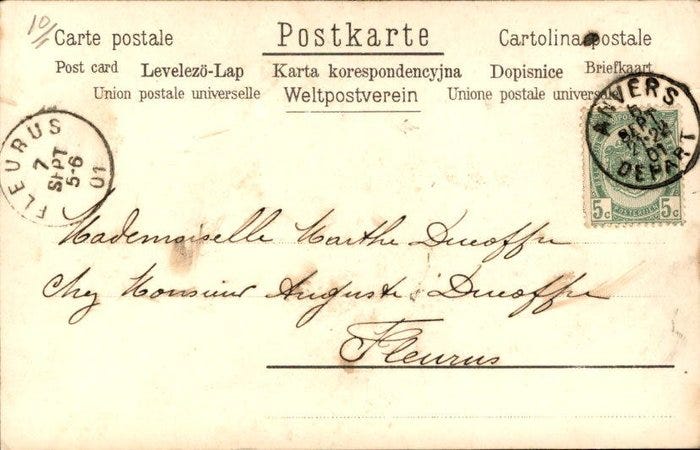 10/1
Carte postale Postkarte Cartolina postale
Post card Levelezö-Lap Karta korespondencyjna Dopisnice Briefkaart
Union postale universelle Weltpostverein Unione postale universale
ANVERS
SEPT
01
DEPART
FLEURUS
7
SEPT
5-6
01
5c POSTERIJEN 5c
Mademoiselle Marthe Ducoffre
Chez Monsieur Auguste Ducoffre
Fleurus